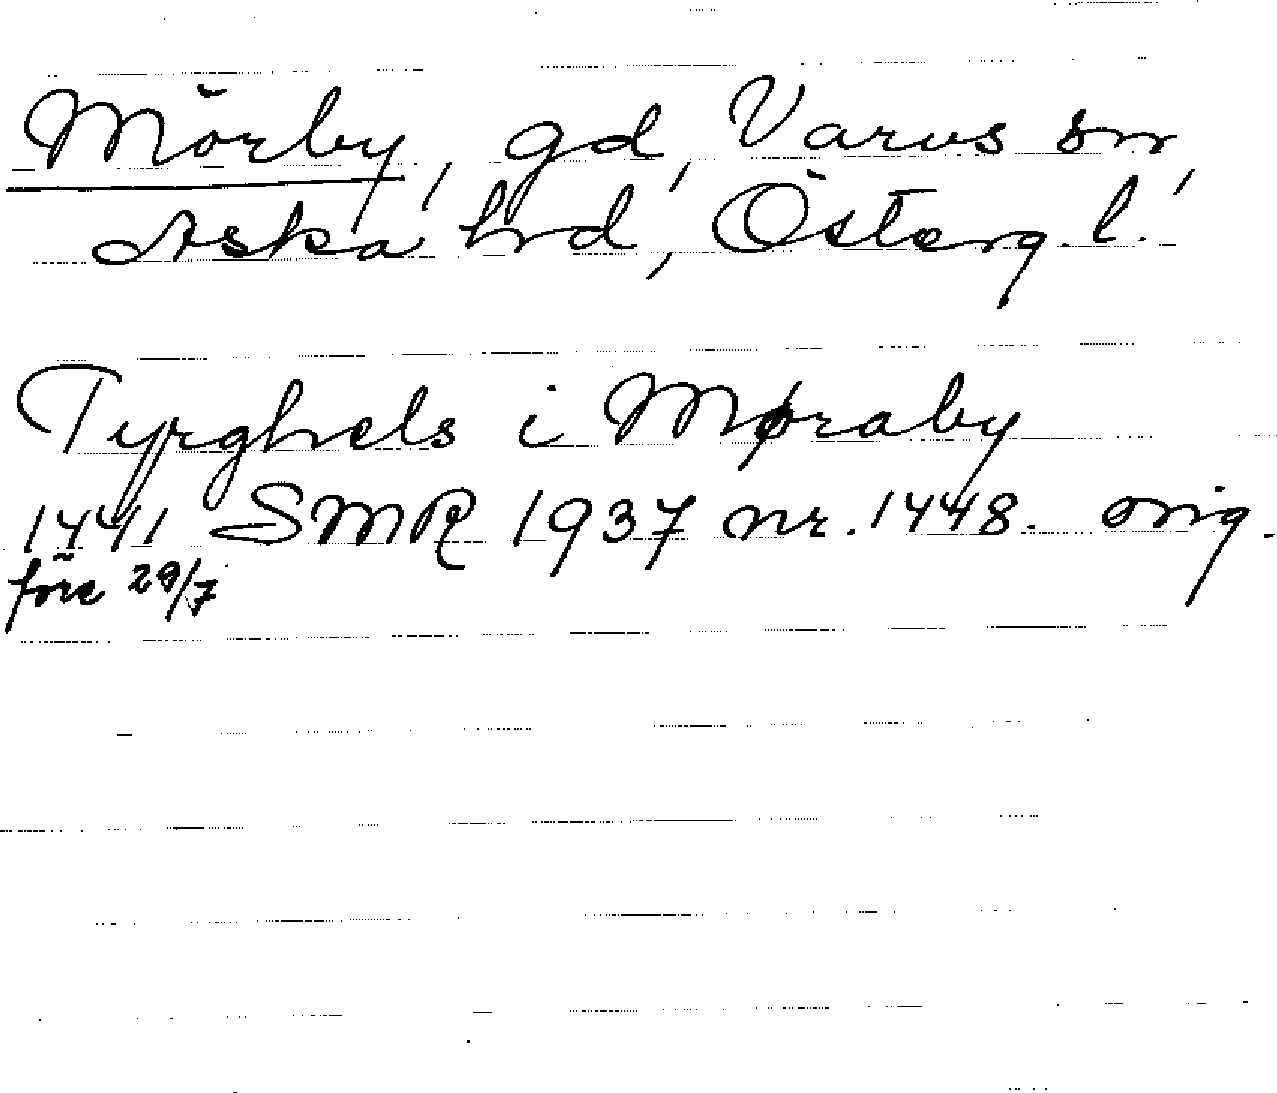 Mörby, gd, Varvs sn,
Aska hrd, Österg. l.
Tyrghels i Møraby
1441 SMR 1937 nr. 1448. orig.
före 29/7